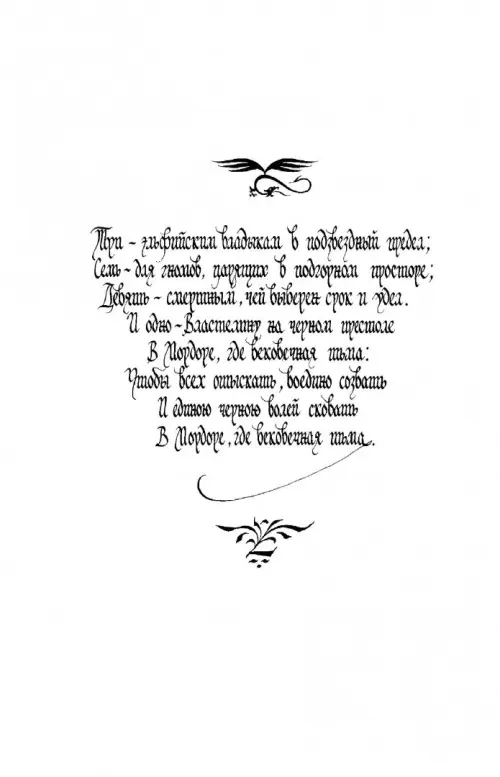 Три - эльфийским владыкам в подзвездный предел;
Семь - для гномов, царящих в подгорном просторе;
Девять - смертным, чей выверен срок и удел.
И одно - Властелину на черном престоле
В Мордоре, где вековечная тьма:
Чтобы всех отыскать, воедино созвать
И единою черною волей сковать
В Мордоре, где вековечная тьма.